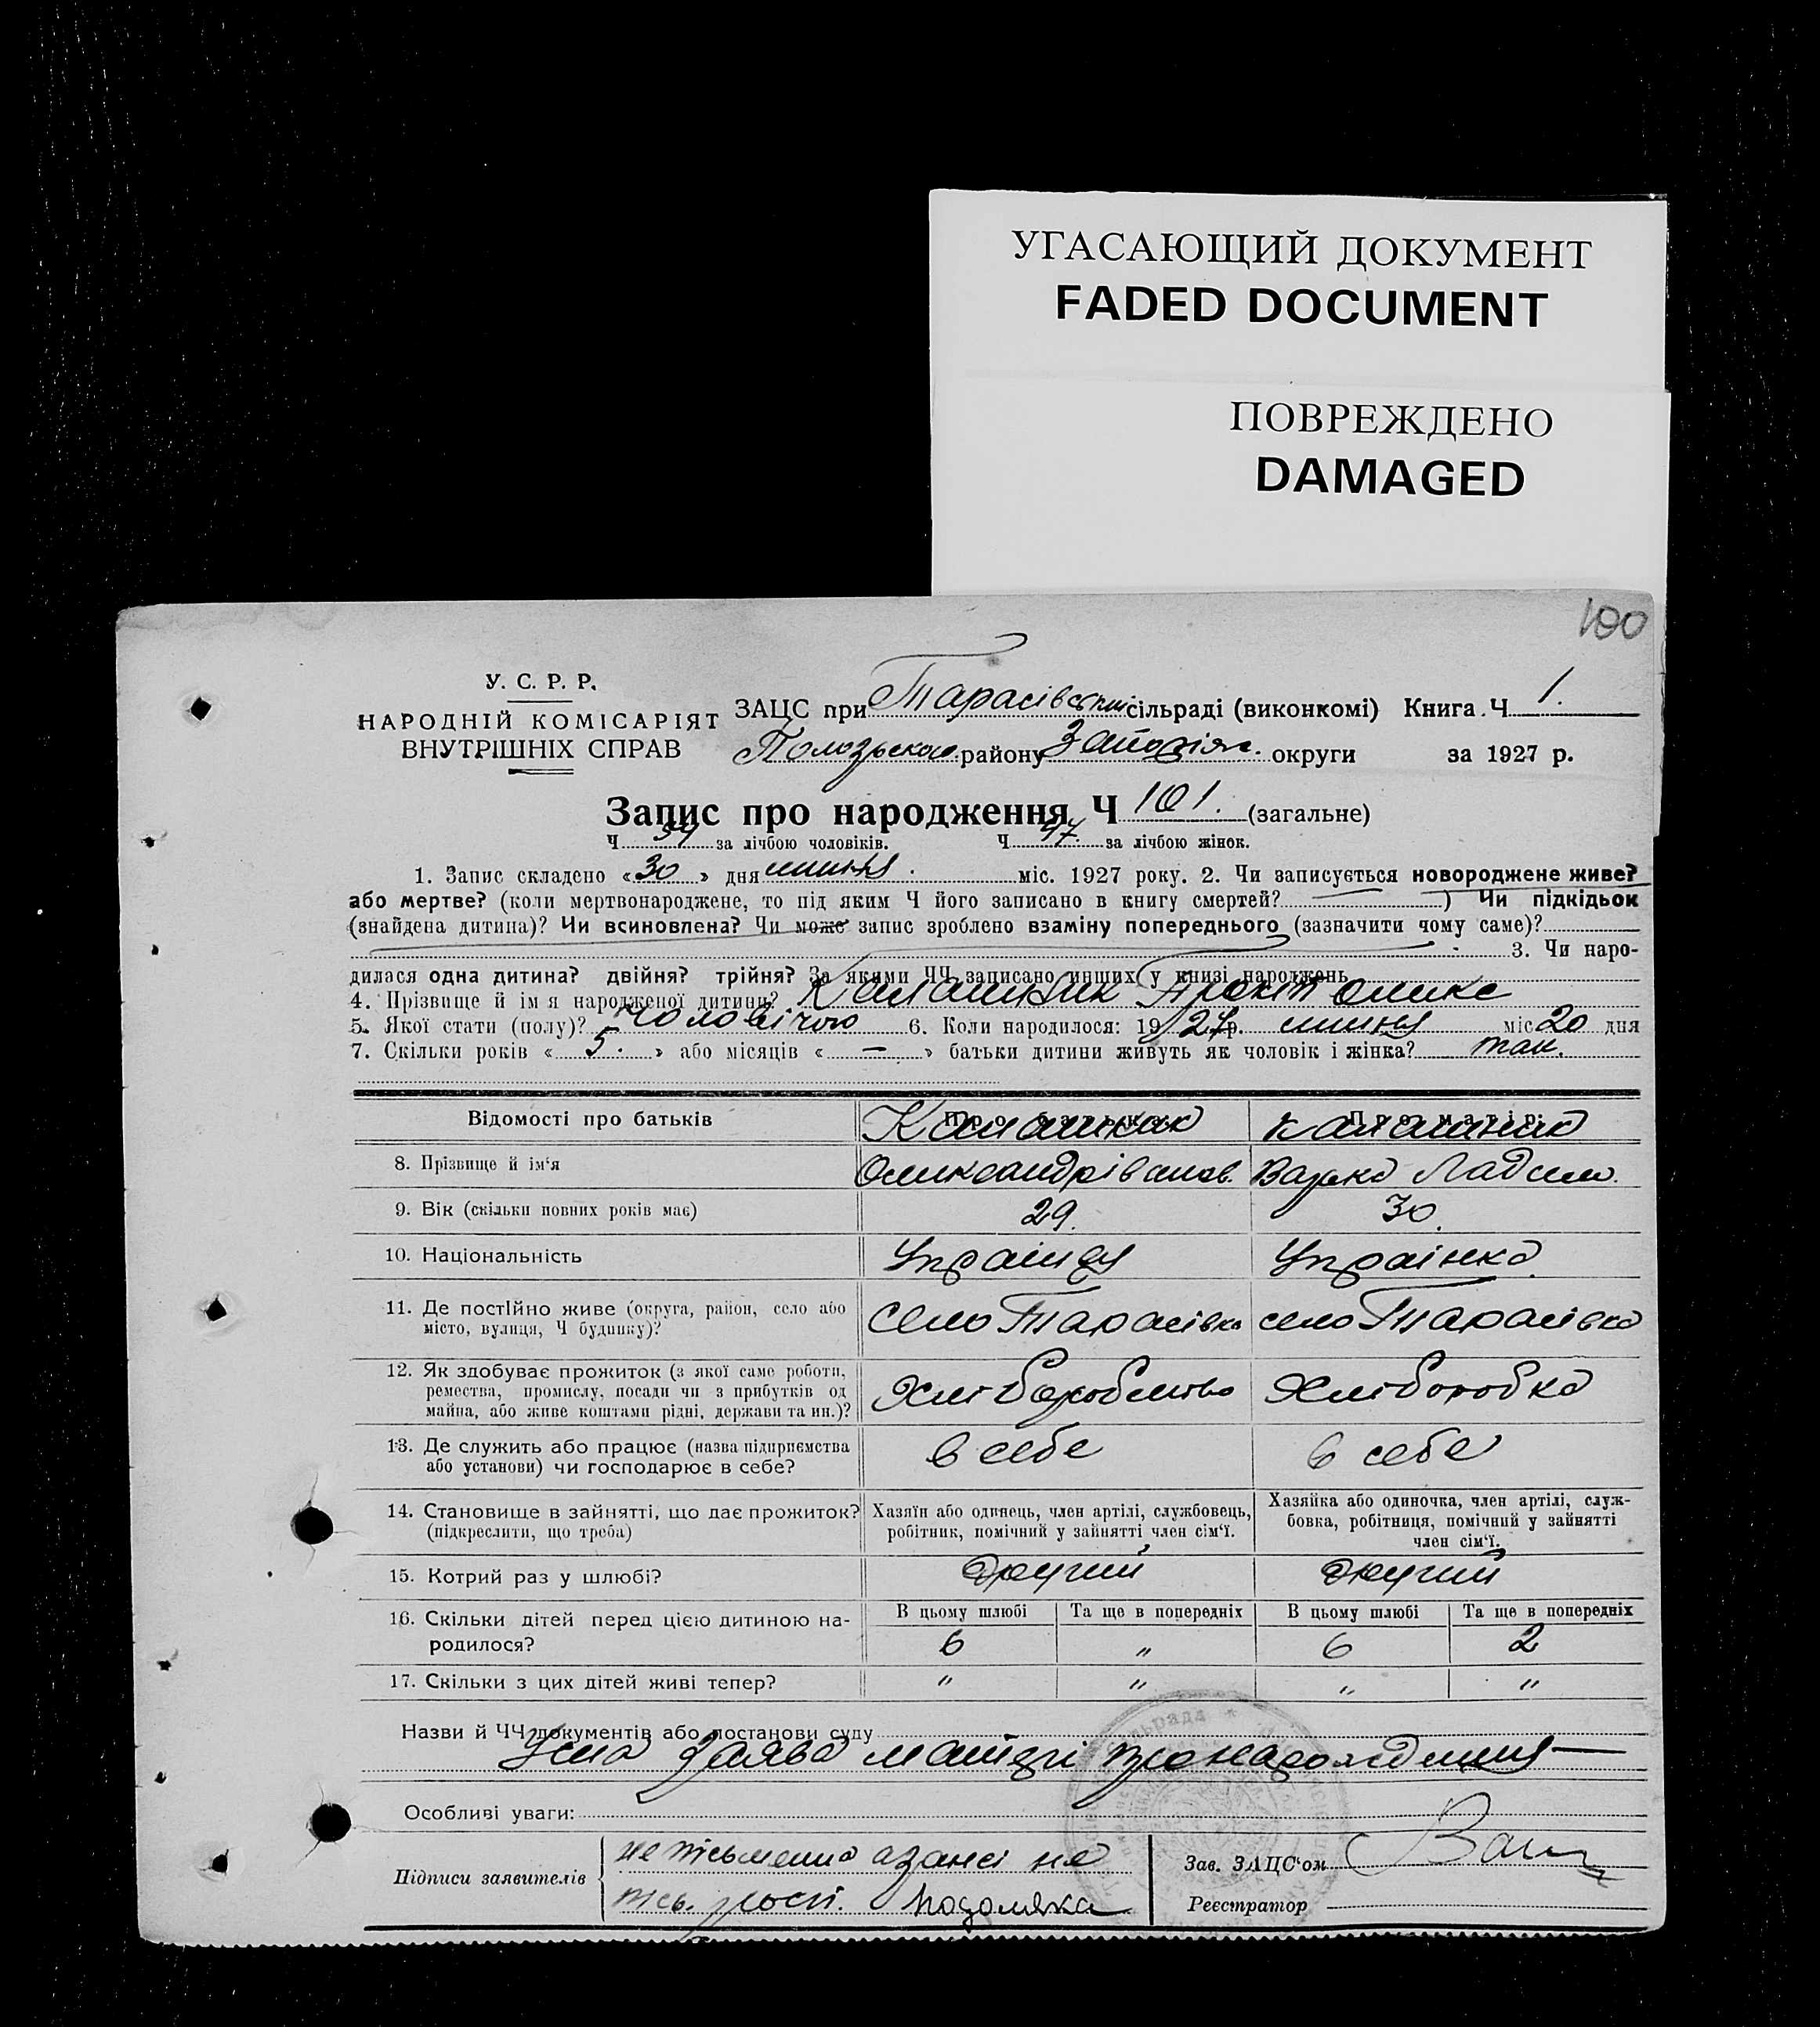 УГАСАЮЩИЙ ДОКУМЕНТ
FADED DOCUMENT
ПОВРЕЖДЕНО
DAMAGED
100
У. С. Р. Р.
НАРОДНІЙ КОМІСАРІЯТ
ВНУТРІШНІХ СПРАВ
ЗАЦС при Тарасівській сільраді (виконкомі) Книга Ч 1.
Пологського району Запоріж. округи за 1927 р.
Запис про народження Ч 101. (загальне)
Ч 54 за лічбою чоловіків. Ч 47. за лічбою жінок.
1. Запис складено «30» дня липня. міс. 1927 року. 2. Чи записується новороджене живе?
або мертве? (коли мертвонароджене, то під яким Ч його записано в книгу смертей? —) Чи підкідьок
(знайдена дитина)? Чи всиновлена? Чи може запис зроблено взаміну попереднього (зазначити чому саме)?
3. Чи наро-
дилася одна дитина? двійня? трійня? За якими ЧЧ записано инших у книзі народжень
4. Прізвище й ім я народженої дитини? Калашник
5. Якої стати (полу)? чоловічою 6. Коли народилося: 1927р. липня міс 20 дня
7. Скільки років «5.» або місяців «—» батьки дитини живуть як чоловік і жінка? так.
Відомості про батьків Про батька: Про матір:
Калашник Калашник
8. Прізвище й ім‘я Олександр Іванов. Варка
9. Вік (скільки повних років має) 29. 30.
10. Національність Українец Українка
11. Де постійно живе (округа, район, село або село Тарасівка село Тарасівка
місто, вулиця, Ч будинку)?
12. Як здобуває прожиток (з якої саме роботи,
ремества, промислу, посади чи з прибутків од Хліборобство Хліборобка
майна, або живе коштами рідні, держави та ин.)?
13. Де служить або працює (назва підприємства в себе в себе
або установи) чи господарює в себе?
14. Становище в зайнятті, що дає прожиток? Хазяїн або одинець, член артілі, службовець, Хазяйка або одиночка, член артілі, служ-
(підкреслити, що треба) робітник, помічний у зайнятті член сім‘ї. бовка, робітниця, помічний у зайнятті
член сім‘ї.
15. Котрий раз у шлюбі? другий другий
16. Скільки дітей перед цією дитиною на- В цьому шлюбі Та ще в попередніх В цьому шлюбі Та ще в попередніх
родилося? 6 " 6 2
17. Скільки з цих дітей живі тепер? " " " "
Назви й ЧЧ документів або постанови суду
Усна Заява матері про народження —
Особливі уваги:
Підписи заявителів неписьменна
Зав. ЗАЦС‘ом
Реєстратор